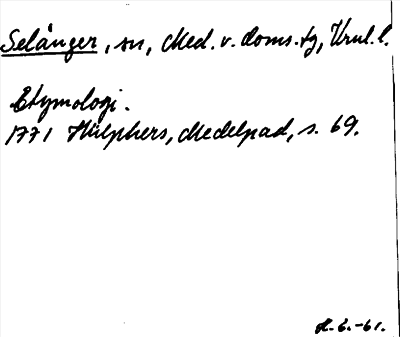 Selånger, sn, Med. v. doms. tg, Vnl. l.
Etymologi.
1771 Hülphers, Medelpad, s. 69.
H. E. -61.